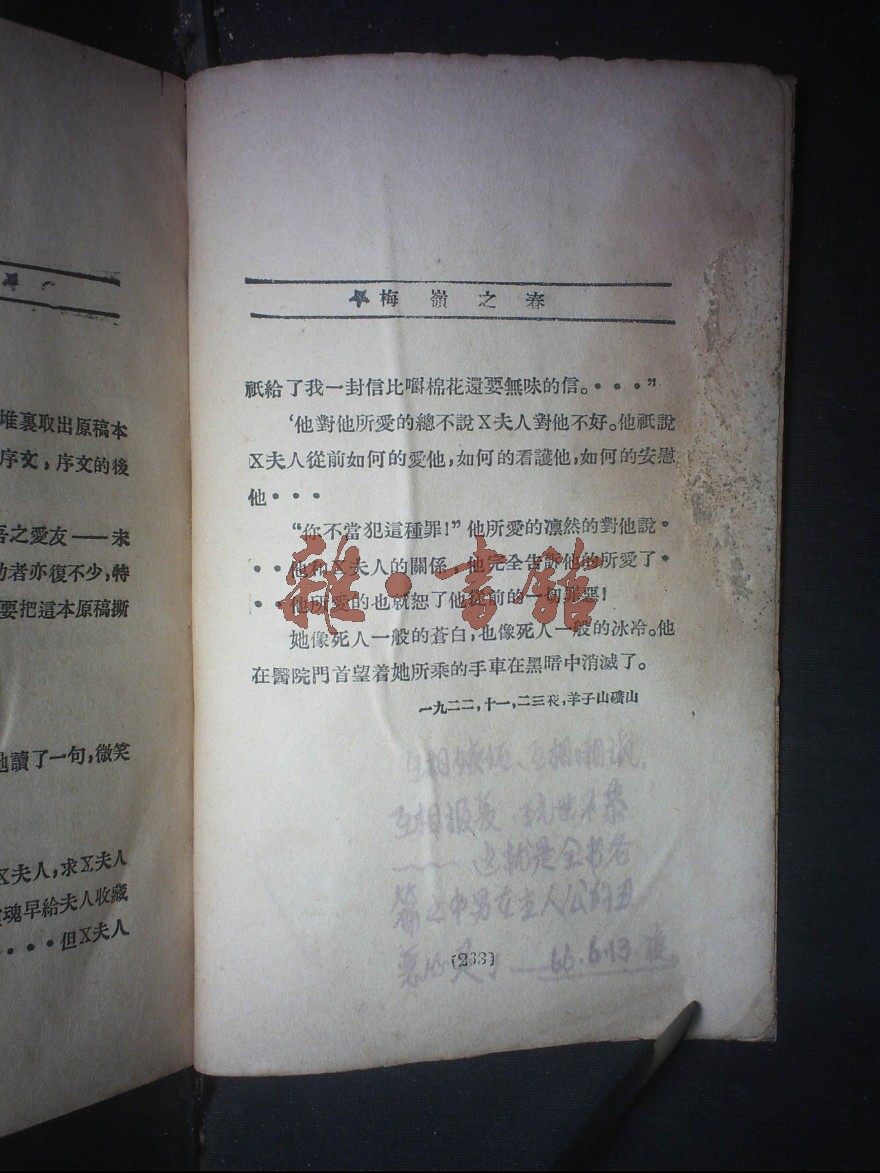 堆裏取出原稿本
序文，序文的後
吾之愛友——未
功者亦復不少，特
要把這本原稿撕
他讀了一句，微笑
X夫人，求X夫人
魂早給夫人收藏
・・・・但X夫人
梅嶺之春
祇給了我一封信比嚼棉花還要無味的信。・・・”
‘他對他所愛的總不說X夫人對他不好。他祇說
X夫人從前如何的愛他，如何的看護他，如何的安慰
他・・・
“你不當犯這種罪！”他所愛的凛然的對他說・
・・他和X夫人的關係，他完全告訴他的所愛了・
・・他所愛的也就恕了他從前的一切罪惡！
她像死人一般的蒼白，也像死人一般的冰冷。他
在醫院門首望着她所乘的手車在黑暗中消滅了。
一九二二，十一，二三夜，羊子山礦山
雜・書館
互相
互相报复、玩世不恭
——这就是全书各
篇之中男女主人公的丑
恶心灵 ——66.6.13.
(233)